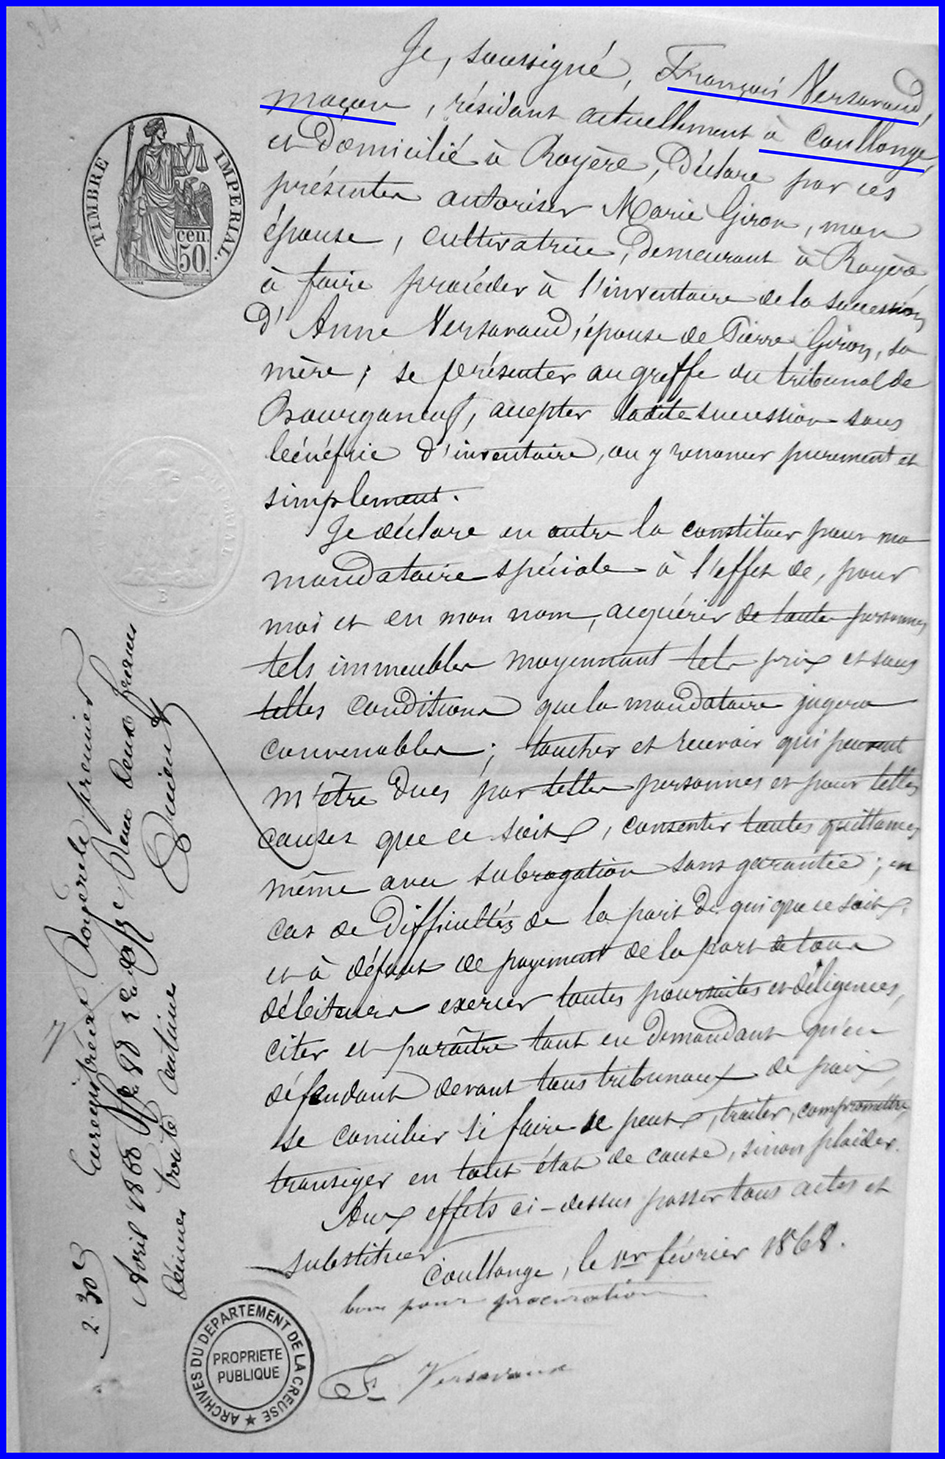 Je, soussigné, François Versavaud,
maçon, résidant actuellement à Coullonge,
et domicilié à Royère, déclare par ces
présentes autoriser Marie Giron, mon
épouse, cultivatrice, demeurant à Royère,
à faire procéder à l'inventaire de la succession
d'Anne Versavaud, épouse de Pierre Giron, sa
mère; se présenter au greffe du tribunal de
Bourganeuf, accepter ladite succession sous
bénéfice d'inventaire, ou y renoncer purement et
simplement.
Je déclare en outre la constituer pour ma
mandataire spéciale à l'effet de, pour
moi et en mon nom, acquérir de toutes personnes
tels immeubles moyennant tels prix et sous
telles conditions que la mandataire jugera
convenables; toucher et recevoir qui peuvent
m'être dues par telles personnes et pour telles
causes que ce soit, consentir toutes quittances
même avec subrogation sans garantie; en
cas de difficultés de la part de qui que ce soit,
et à défaut de payement de la part de tous
débiteurs exercer toutes poursuites et diligences,
citer et paraître tant en demandant qu'en
défendant devant tous tribunaux de paix,
se concilier si faire se peut, traiter, compromettre,
transiger en tout état de cause, sinon plaider.
Aux effets ci-dessus passer tous actes et
substituer
Coullonge, le 1er février 1868.
bon pour procuration
F. Versavaud
TIMBRE IMPERIAL.
50 cen.
2.30c Enregistré à Royère le premier
Avril 1868
deux francs
décimes trente centimes
ARCHIVES DU DEPARTEMENT DE LA CREUSE ★
PROPRIETE
PUBLIQUE